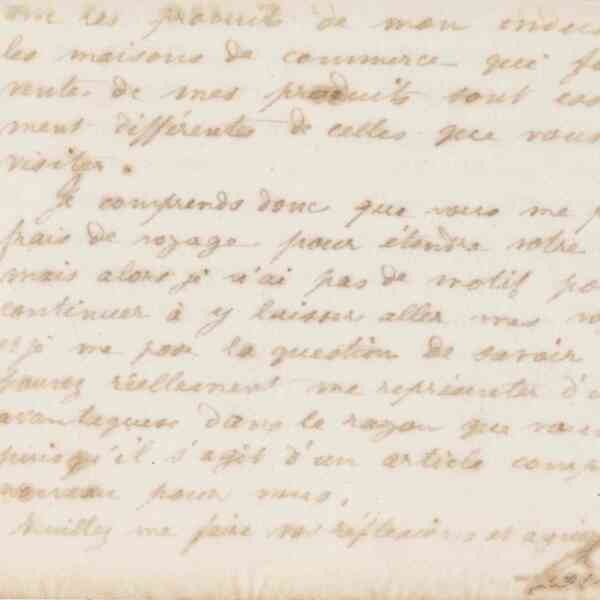 les produits de mon
les maisons de commerce que
ventes de mes produits sont
ment différentes de celles que vous
visitez.
Je comprends donc que vous me
frais de voyage pour étendre votre
mais alors je n'ai pas de motif
continuer à y laisser aller mes
et je me pose la question de savoir
pouvez réellement me représenter
avantageuse dans le rayon que vous
puisqu'il s'agit d'un article
nouveau pour vous.
Veuillez me faire vos réflexions et